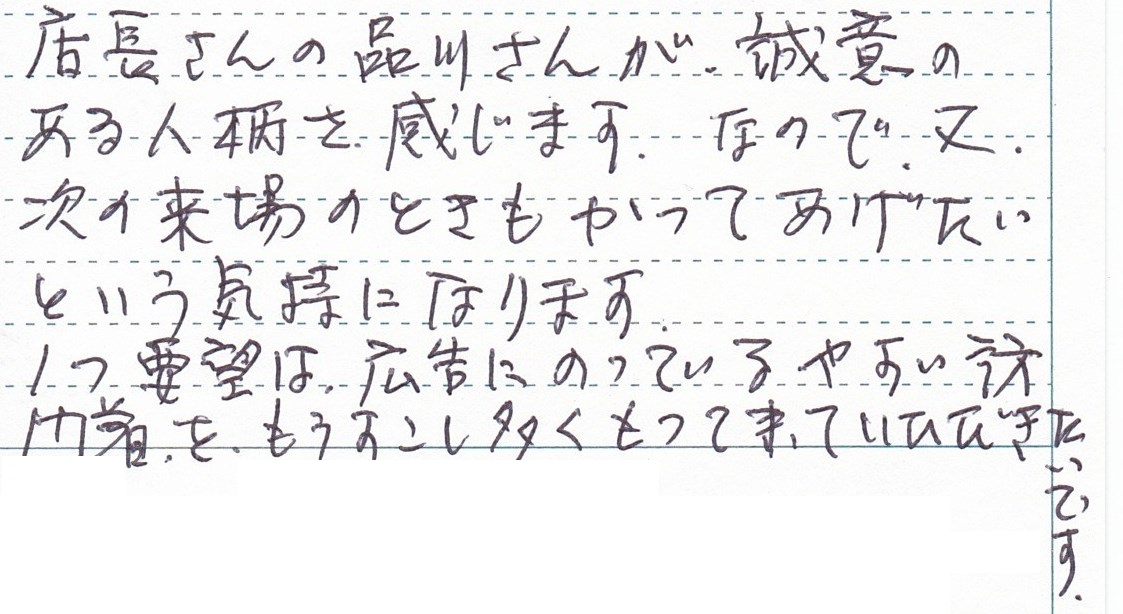 店長さんの品川さんが、誠意の
ある人柄を感じます。なので、又、
次の来場のときもかってあげたい
という気持になります。
1つ要望は、広告にのっているやすい訪
問着を、もうすこし多くもってきていただきたいです。